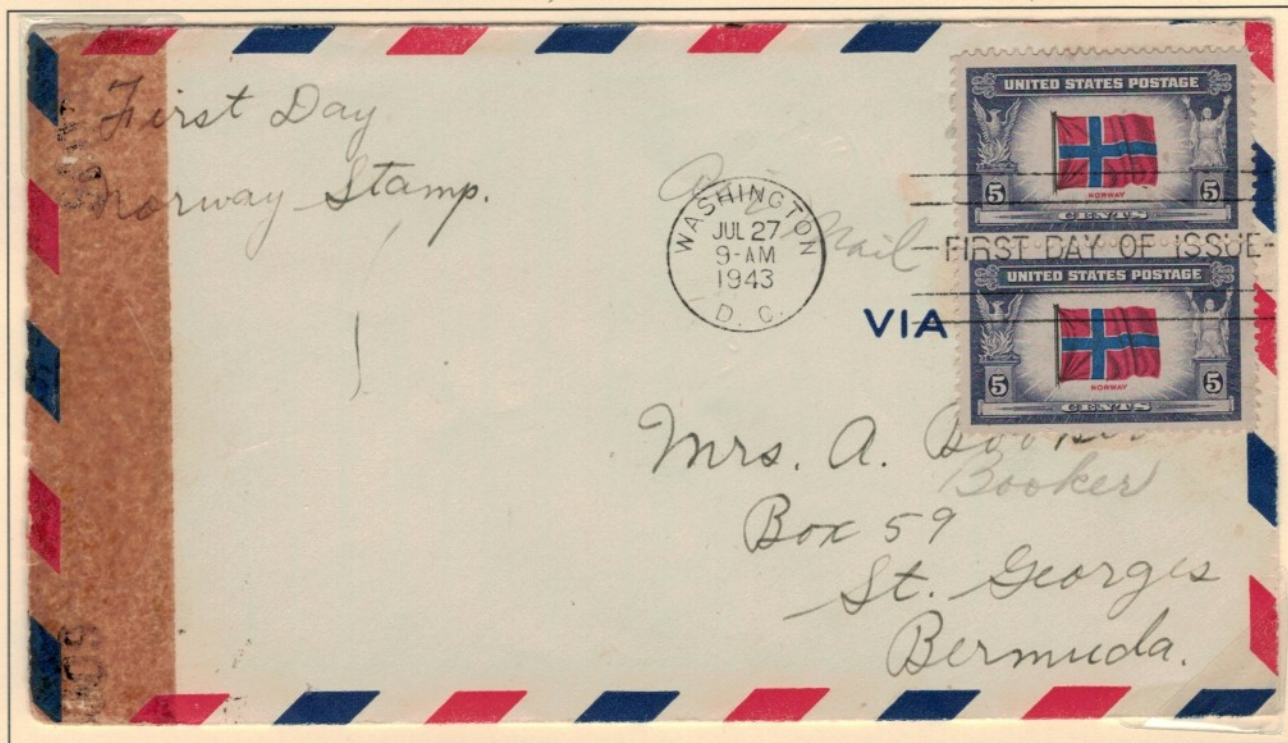 First Day
Norway Stamp.
Air Mail
WASHINGTON
JUL 27
9-AM
1943
D. C.
FIRST DAY OF ISSUE
UNITED STATES POSTAGE
NORWAY
5 5
CENTS
UNITED STATES POSTAGE
NORWAY
5 5
CENTS
VIA
Mrs. A.
Booker
Box 59
St. Georges
Bermuda.